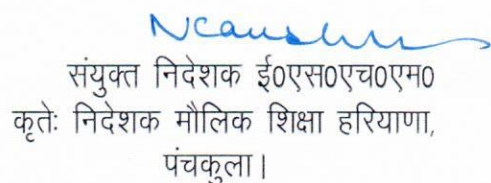 संयुक्त निदेशक ई0एस0एच0एम0
कृतेः निदेशक मौलिक शिक्षा हरियाणा,
पंचकुला।